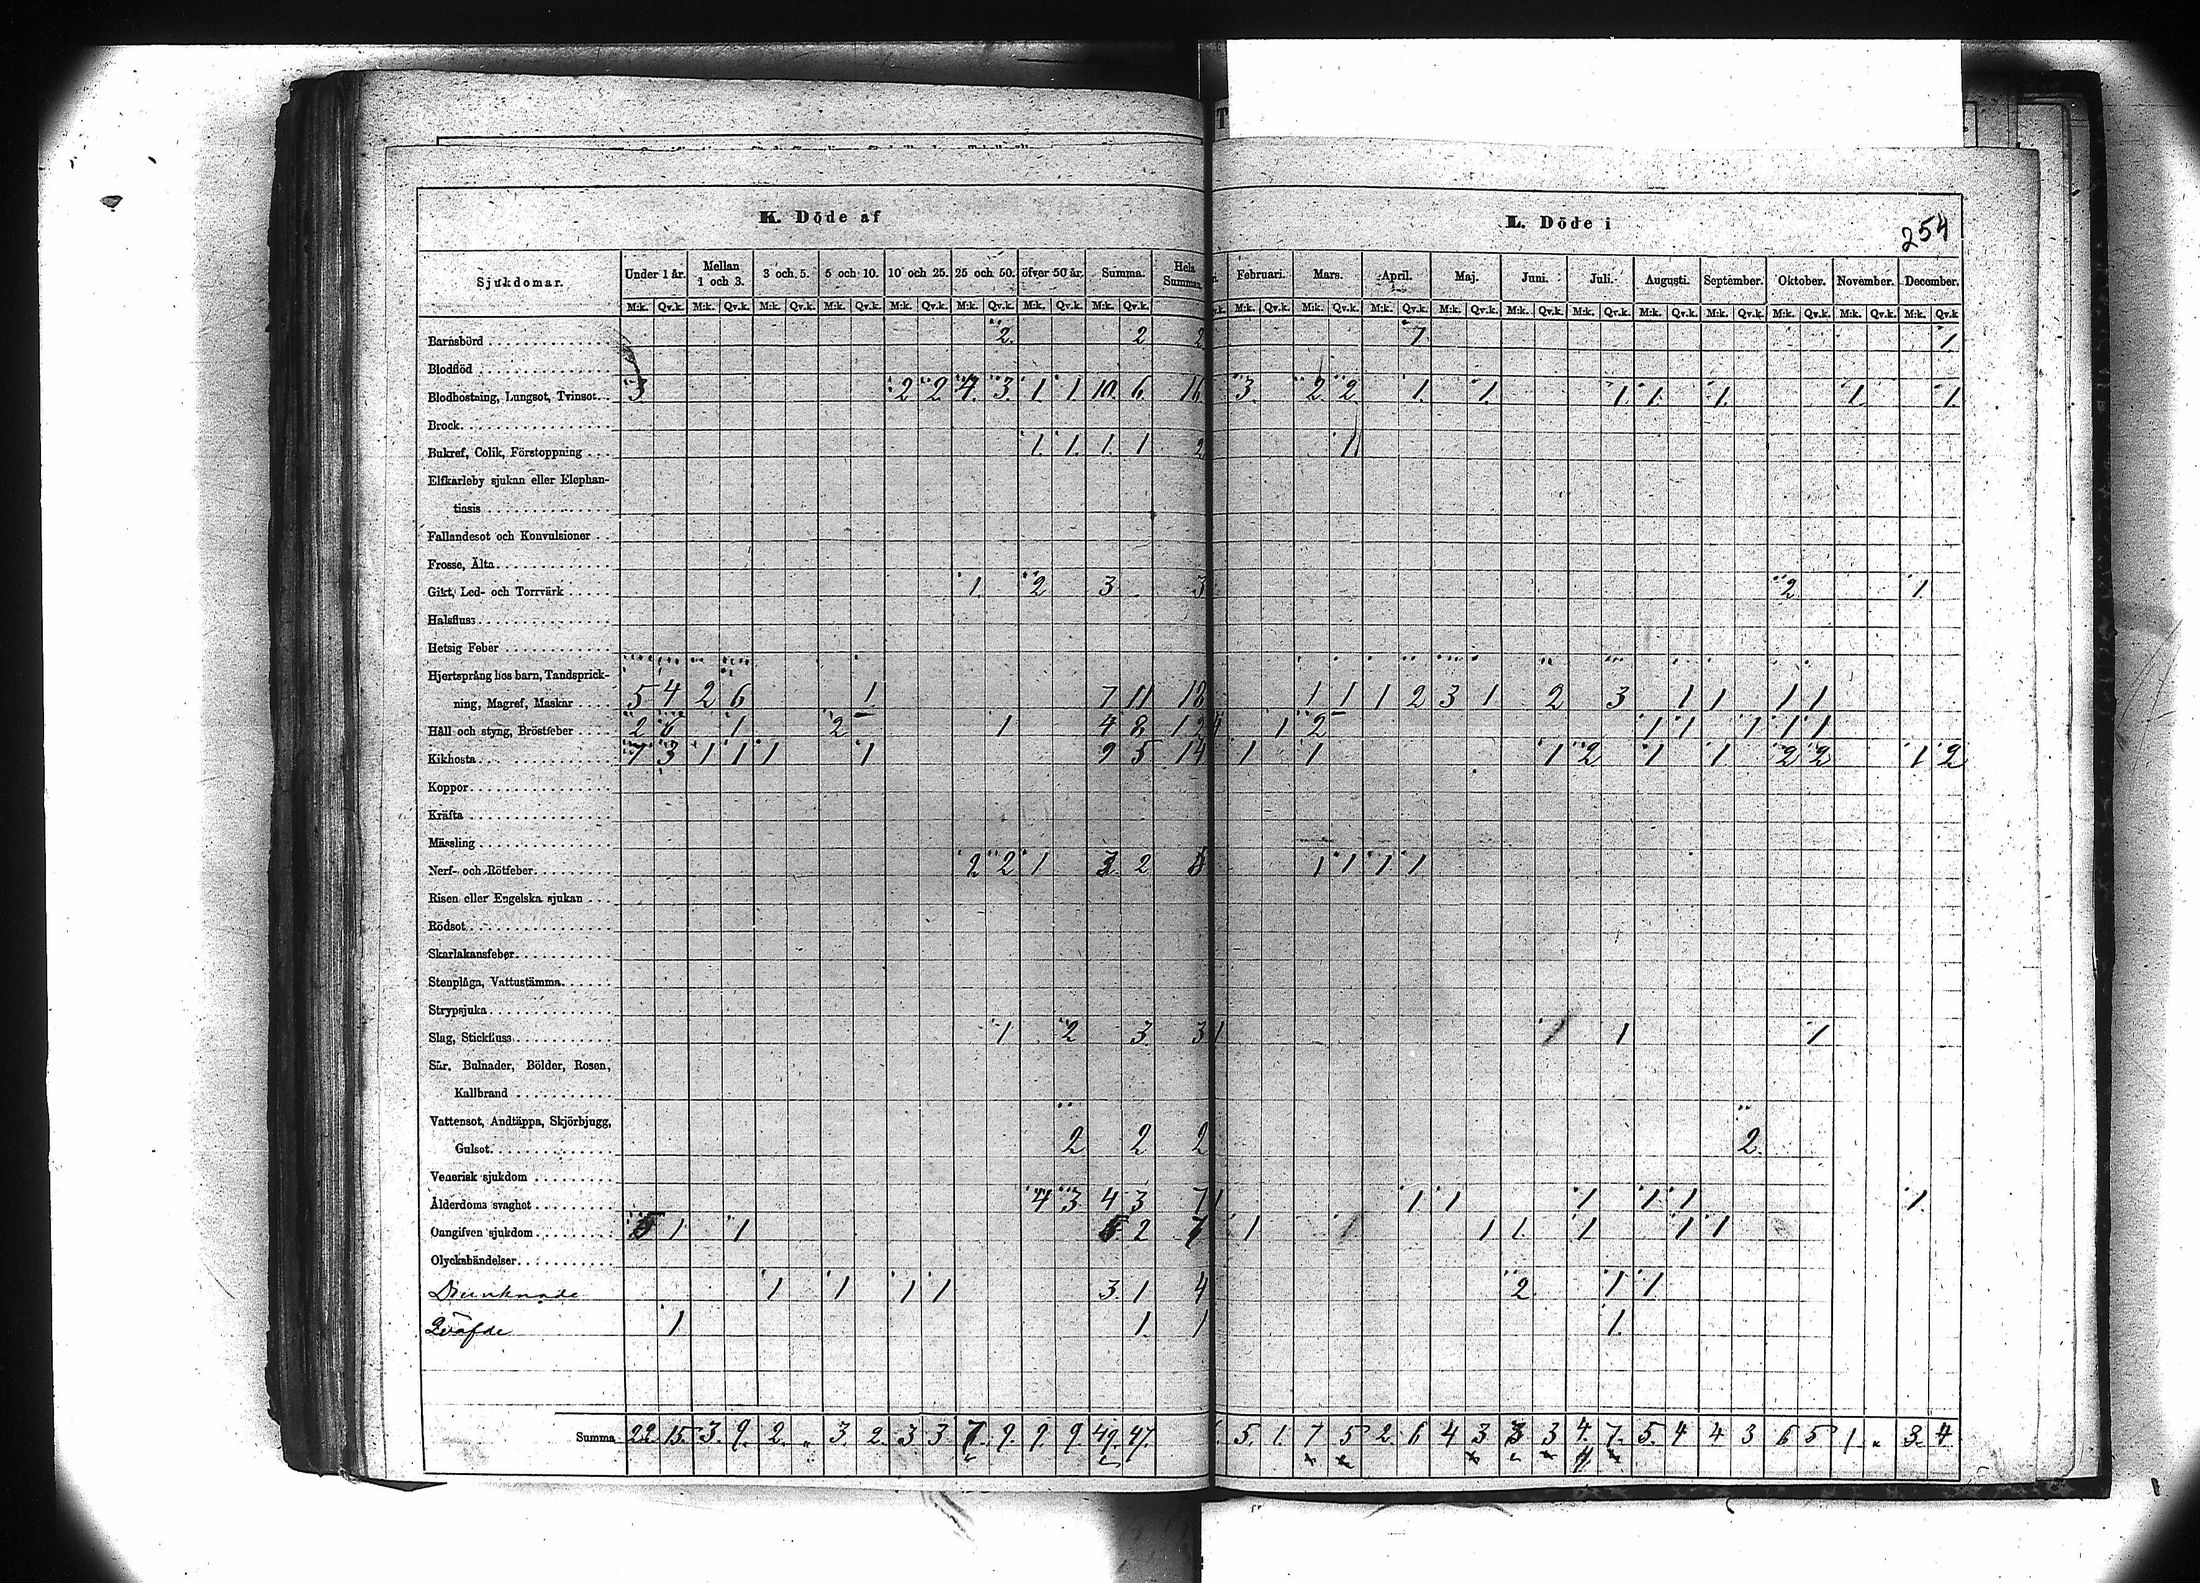 K. Döde af L. Döde i 254
Sjukdomar. Under 1 år. Mellan 1 och 3. 3 och 5. 5 och 10. 10 och 25. 25 och 50. öfver 50 år. Summa. Hela Summan. Februari. Mars. April. Maj. Juni. Juli. Augusti. September. Oktober. November. December.
M:k. Qv.k. M:k. Qv.k. M:k. Qv.k. M:k. Qv.k. M:k. Qv.k. M:k. Qv.k. M:k. Qv.k. M:k. Qv.k. M:k. Qv.k. M:k. Qv.k. M:k. Qv.k. M:k. Qv.k. M:k. Qv.k. M:k. Qv.k. M:k. Qv.k. M:k. Qv.k. M:k. Qv.k. M:k. Qv.k. M:k. Qv.k
Barnsbörd 2. 2 2 1 1
Blodflöd
Blodhostning, Lungsot, Tvinsot. 3 2 2 4. 3. 1. 1. 10. 6. 16 3. 2 2 1. 1. 1. 1. 1. 1. 1.
Brock.
Bukref, Colik, Förstoppning 1. 1. 1. 1 2 1
Elfkarleby sjukan eller Elephan-
tiasis
Fallandesot och Konvulsioner
Frosse, Älta.
Gikt, Led- och Torrvärk 1. 2 3 3 2 1.
Halsfluss
Hetsig Feber
Hjertsprång hos barn, Tandsprick-
ning, Magref, Maskar 5 4 2 6 1 7 11 18 1 1 1 2 3 1 2 3 1 1 1 1
Håll och styng, Bröstfeber 2 6 1 2 1 4 8 12 4 1 2 1 1 1 1 1
Kikhosta 7 3 1 1 1 1 9 5 14 1 1 1 2 1 1 2 2 1 2
Koppor
Kräfta
Mässling
Nerf- och Rötfeber. 2 2 1 3 2 5 1 1 1 1
Risen eller Engelska sjukan
Rödsot
Skarlakansfeber.
Stenplåga, Vattustämma.
Strypsjuka
Slag, Stickfluss 1 2 3 3 1 1 1 1
Sår, Bulnader, Bölder, Rosen,
Kallbrand
Vattensot, Andtäppa, Skjörbjugg,
Gulsot. 2 2 2 2.
Venerisk sjukdom
Ålderdoms svaghet 4 3 4 3 7 1 1 1 1 1 1 1.
Oangifven sjukdom 5 1 1 5 2 7 1 1 1 1. 1 1 1
Olyckshändelser.
Drunknade 1 1 1 1 3. 1 4 2 1 1
Qväfde 1 1. 1 1.
Summa 22. 15. 3. 9. 2. „ 3. 2. 3. 3 7. 9. 9. 9. 49. 47. 5. 1. 7 5 2. 6 4 3 3 3 4. 7. 5. 4 4 3 6 5 1. „ 3. 4.